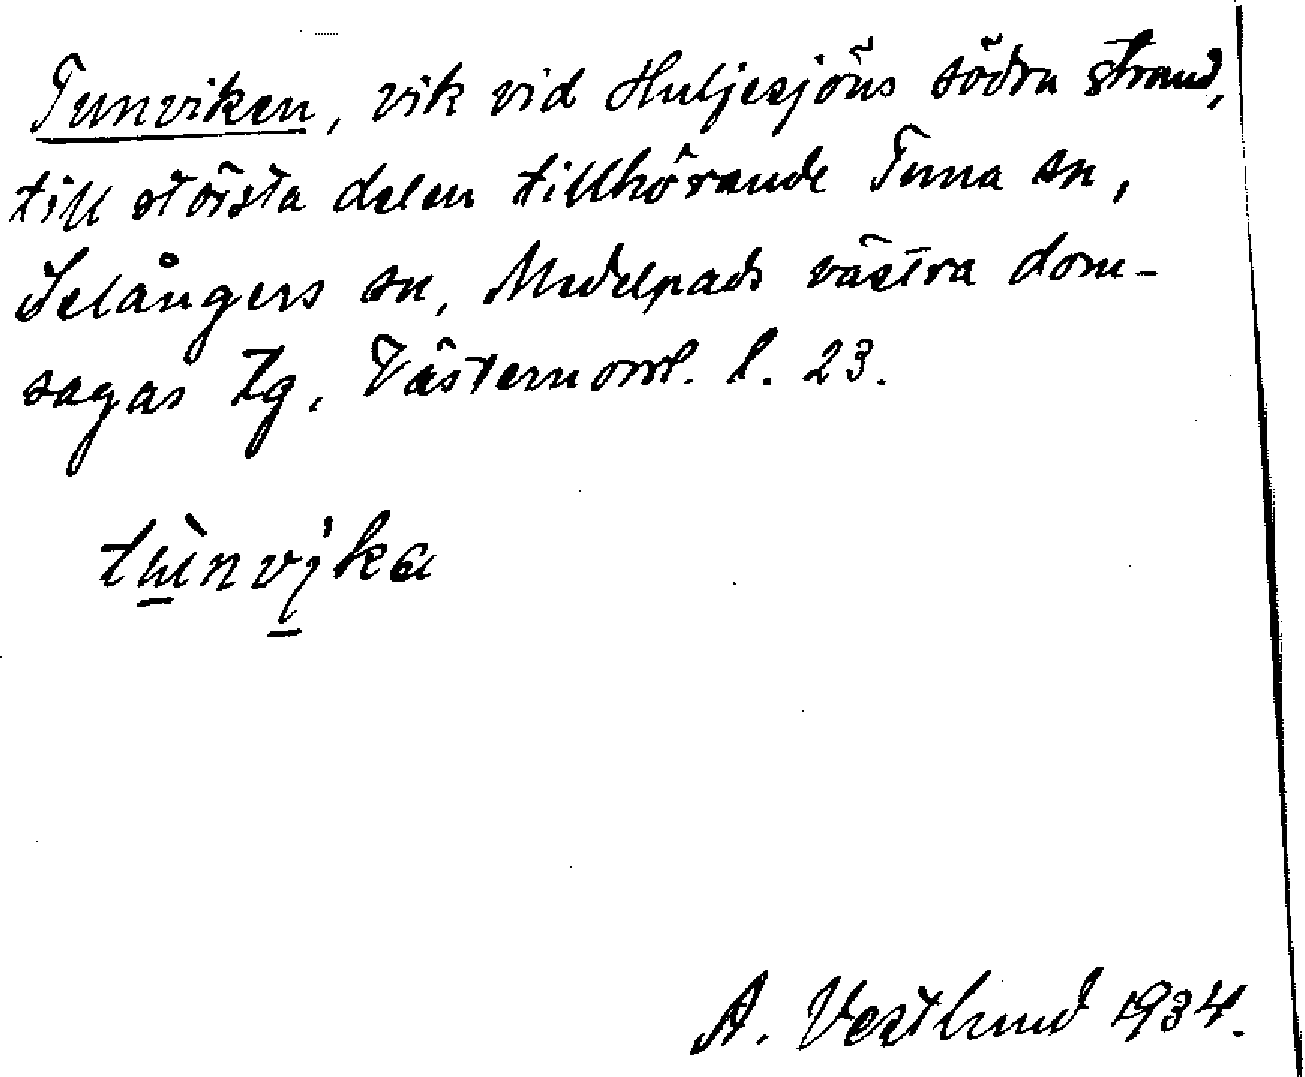 Tunviken, vik vid Huljesjöns södra strand,
till största delen tillhörande Tuna sn,
Selångers sn, Medelpads västra dom-
sagas tg, Västernorrl. l. 23.
tùnvi̢ka
A. Vestlund 1934.